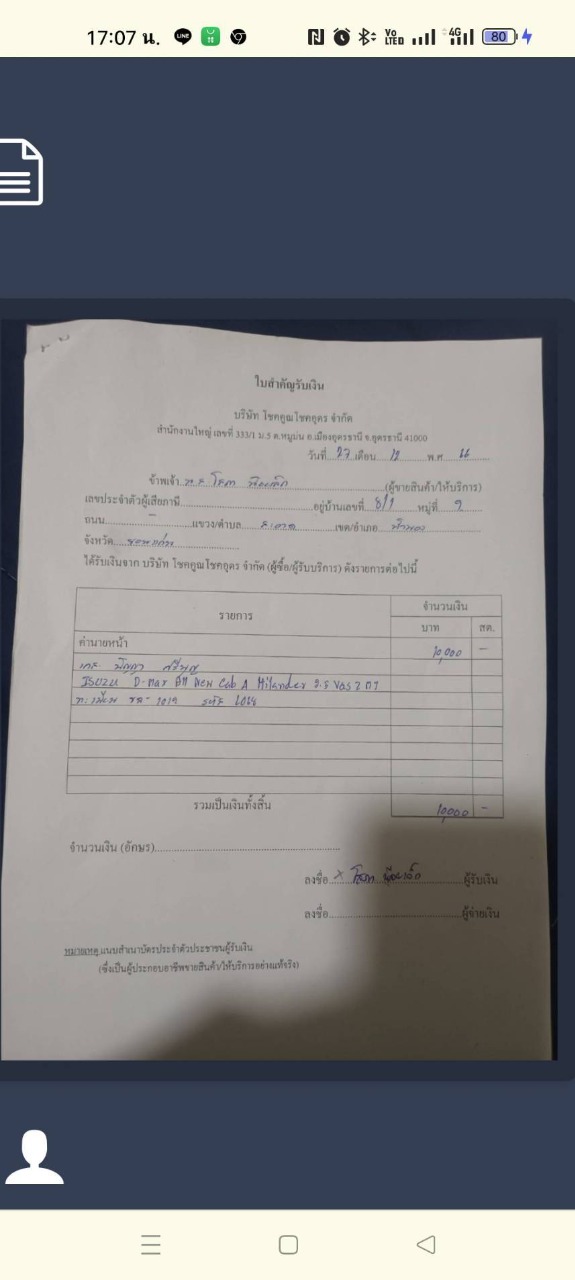 17:07 น.
LINE
Vo LTED 4G 80
ใบสำคัญรับเงิน
บริษัท โชคคูณโชคอุดร จำกัด
สำนักงานใหญ่ เลขที่ 333/1 ม.5 ต.หมูม่น อ.เมืองอุดรธานี จ.อุดรธานี 41000
วันที่ 27 เดือน 12 พ.ศ. 66
ข้าพเจ้า (ผู้ขายสินค้า/ให้บริการ)
เลขประจำตัวผู้เสียภาษี อยู่บ้านเลขที่ 8/1 หมู่ที่ 9
ถนน - แขวง/ตำบล เขต/อำเภอ น้ำพอง
จังหวัด ขอนแก่น
ได้รับเงินจาก บริษัท โชคคูณโชคอุดร จำกัด (ผู้ซื้อ/ผู้รับบริการ) ดังรายการต่อไปนี้
รายการ จำนวนเงิน
บาท สต.
ค่านายหน้า 10,000 -
ISUZU D-max All New Cab 4 Hilander 2.5
รวมเป็นเงินทั้งสิ้น 10,000 -
จำนวนเงิน (อักษร)
ลงชื่อ x ผู้รับเงิน
ลงชื่อ ผู้จ่ายเงิน
หมายเหตุ แนบสำเนาบัตรประจำตัวประชาชนผู้รับเงิน
(ซึ่งเป็นผู้ประกอบอาชีพขายสินค้า/ให้บริการอย่างแท้จริง)